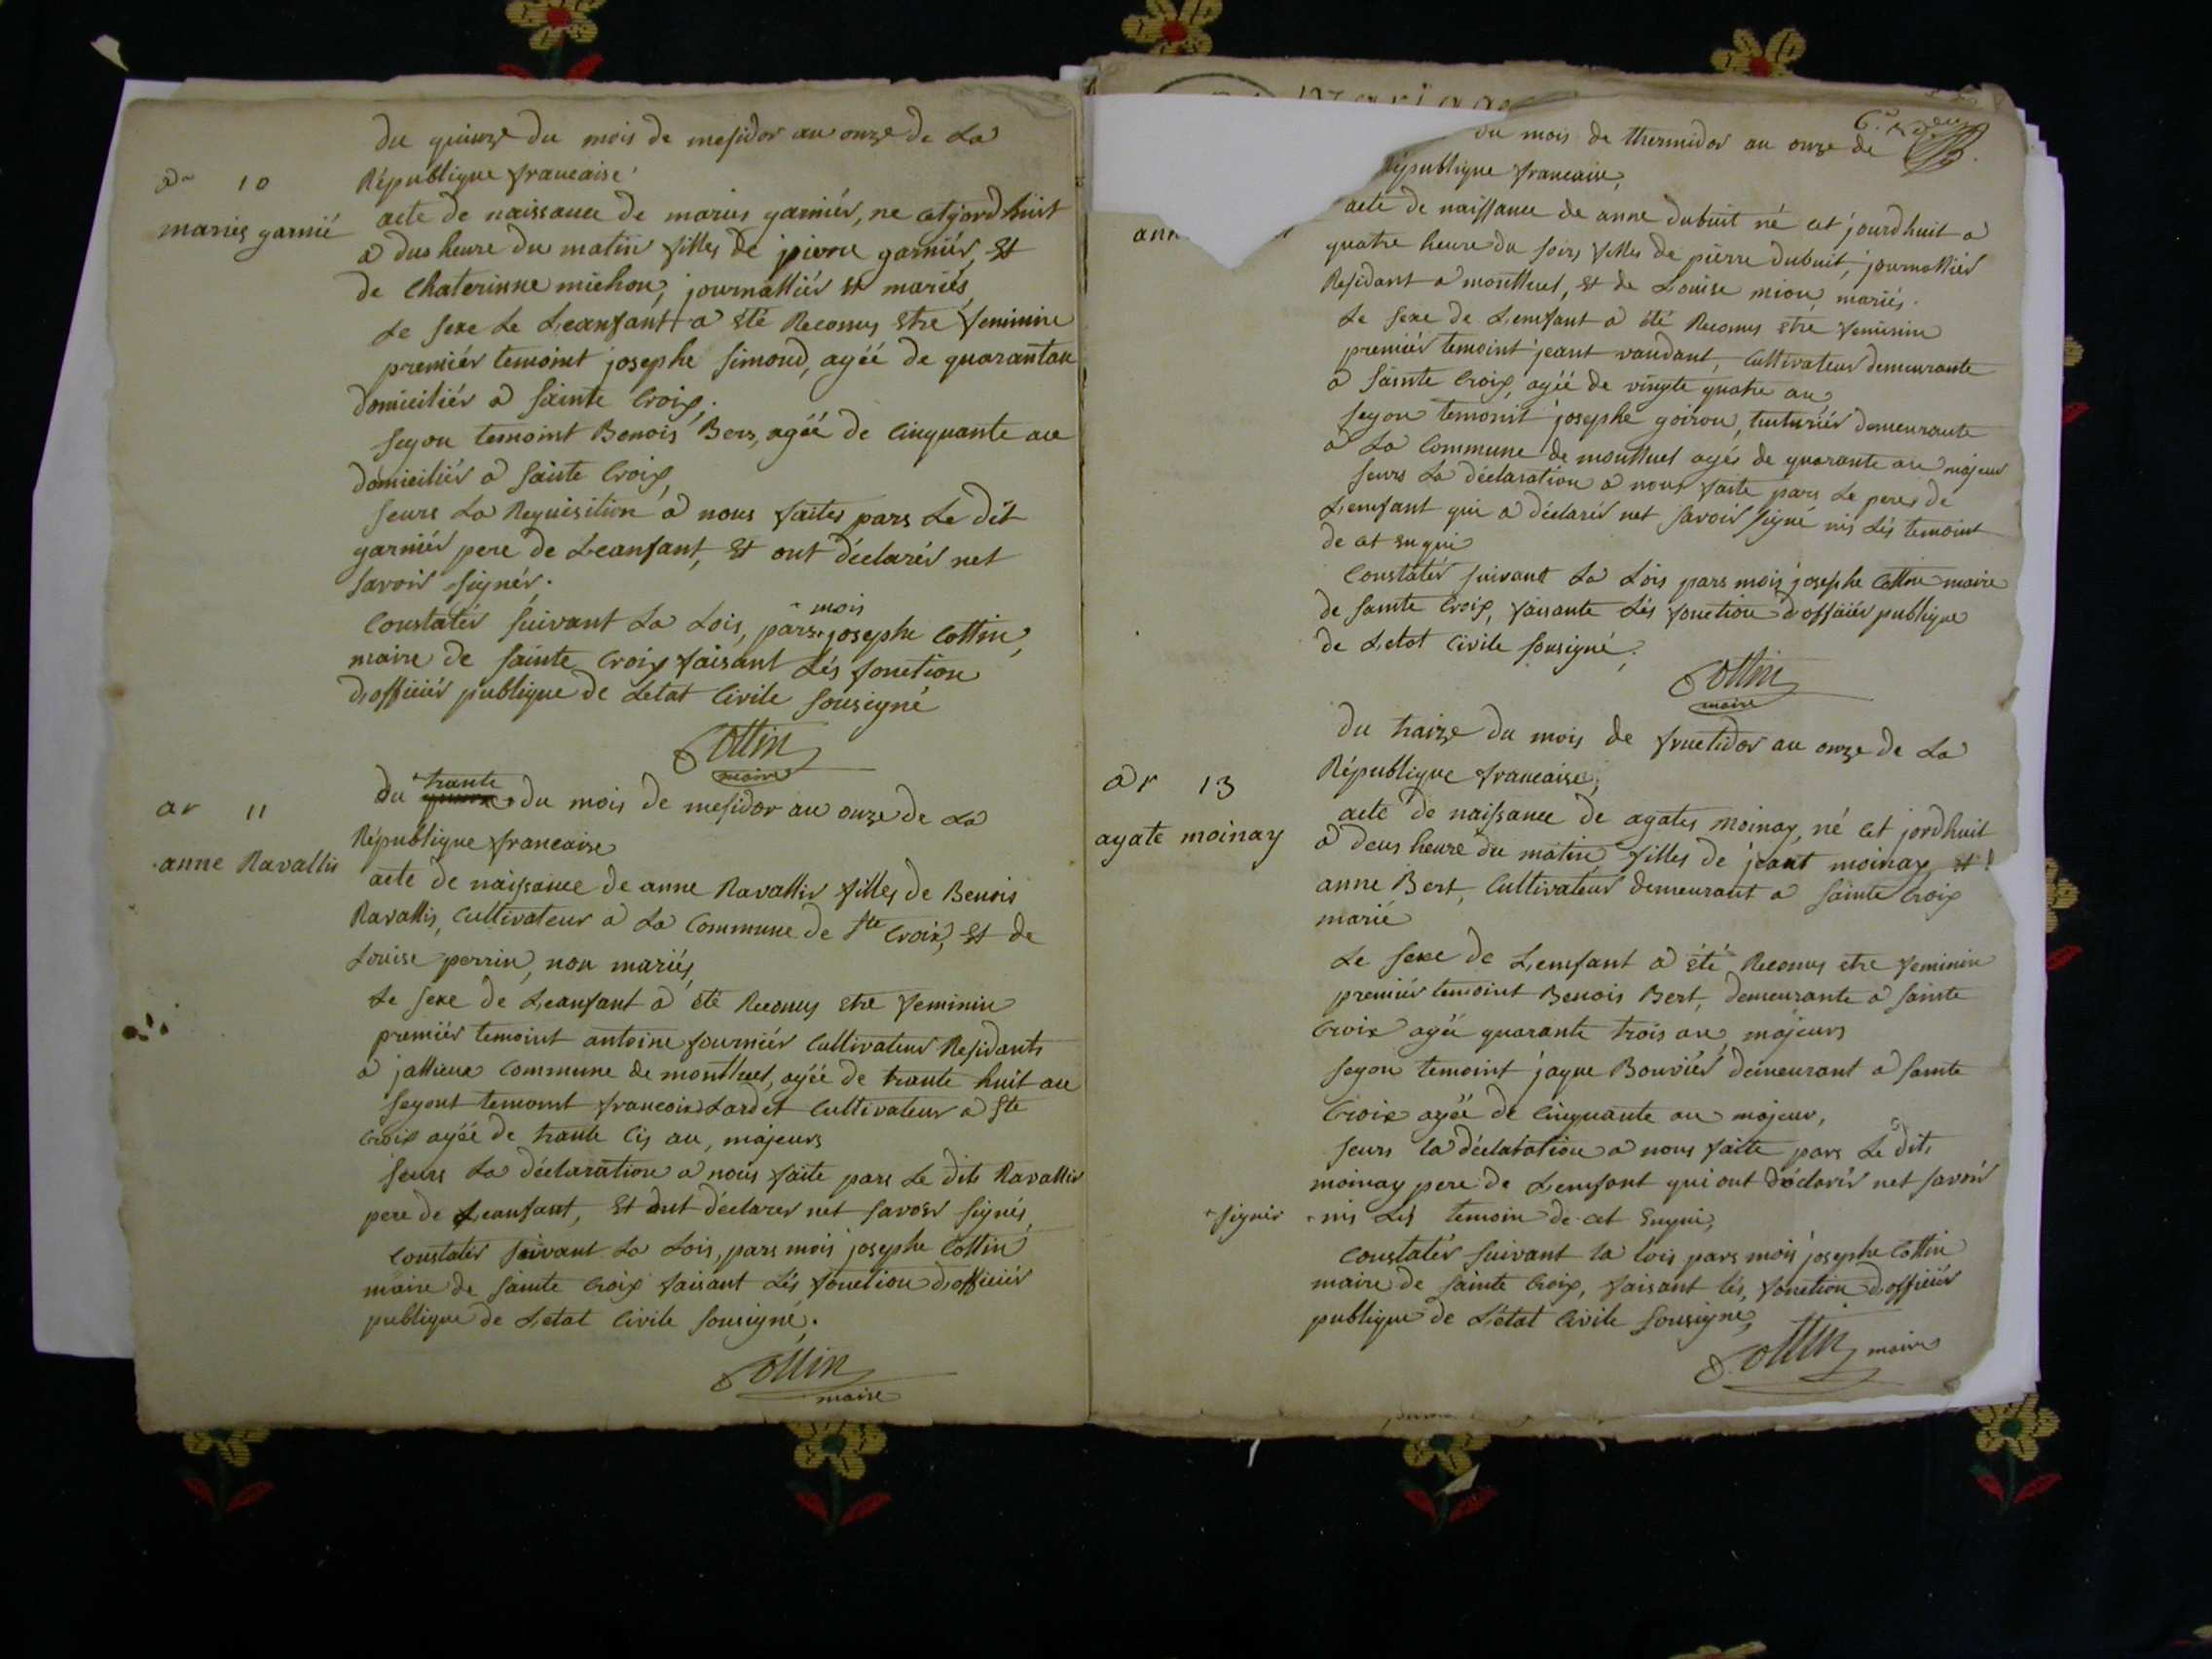 du quinze du mois de mesidor an onze de La
ar 10
République francaise
maries garnié
acte de naissance de maries garniér, ne cetjordhuit
a dus heure du matin filles de pierre garniér, Et
de Chaterinne michon, journalliér Et mariés,
Le sexe Le Leanfant a été Reconus Etre feminine
premiér temoint josephe simond, agéé de quarantan
domiciliér a sainte Croix,
segon temoint Benois Bers, agéé de Cinquante an
domiciliér a sainte Croix,
seurs La Requisition a nous faites pars Le dit
garniér pere de Leanfant, Et ont déclarér net
savoir signér.
Constatér suivant La Lois, pars mois josephe Cottin,
maire de sainte Croix faisant Lés fonction
d,officiér publique de Letat Civile sousigné
Cottin
maire
ar 11
du trante du mois de mesidor an onze de La
République francaise
anne Ravallis
acte de naissance de anne Ravallis filles de Benois
Ravallis, Cultivateur a La Commune de Ste Croix, Et de
Louise perrin, non mariés,
Le sexe de Leanfant a été Reconus Etre feminin
premiér temoint antoine fourniér Cultivateur Residants
a jallieux Commune de montluel, agéé de trante huit an
segont temoint francois Lardet Cultivateur a Ste
Croix agéé de trante Cis an, majeurs
seurs La déclaration a nous faite pars Le dits Ravallis
pere de Leanfant, Et ont déclarer net savoir signés,
Constatér suivant La Lois, pars mois josephe Cottin
maire de sainte Croix faisant Lés fonction d,officiér
publique de Letat Civile sousigné.
Cottin
maire
du mois de thermidor an onze de
République francaise,
acte de naissance de anne dubuit né cet jourdhuit a
ann
quatre heure du soirs filles de piérre dubuit, journalliér
Residant a montluel, Et de Louise mion mariés.
Le sexe de Lenfant a été Reconus Etre feminin
premiér temoint jeant vaudant, Cultivateur demeurante
a sainte Croix, agéé de vingte quatre an
segon temoint josephe goiron, demeurante
a La Commune de montluel agés de quarante an majeur
seurs La déclaration a nous faite pars Le peres de
Lenfant qui a déclarér net savoir signé nis Lés temoint
de cet Enqui
Constatér suivant La Lois pars mois josephe Cottin maire
de sainte Croix, faisante Lés fonction d'officiér publique
de Letat Civile sousigné.
Cottin
maire
du traize du mois de fructidor an onze de La
ar 13
République francaise,
agate moinay
acte de naissance de agates moinay, né cet jordhuit
a deus heure du matin, filles de jeant moinay Et
anne Bert, Cultivateur demeurant a sainte Croix
marié
Le sexe de Lenfant a été Reconus etre feminin
premiér temoint Benois Bert, demeurante a sainte
Croix agéé quarante trois an, majeurs
segon temoint jaque Bouviér demeurant a sainte
Croix agéé de Cinquante an majeur,
seurs la déclaration a nous faite pars Le dits
moinay pere de Lenfant qui ont déclarér net savoir
signér nis Lés temoin de cet Enqui,
Constatér suivant la lois pars mois josephe Cottin
maire de sainte Croix, faisant lés, fonction d,officiér
publique de L'état Civile sousigné,
Cottin maire